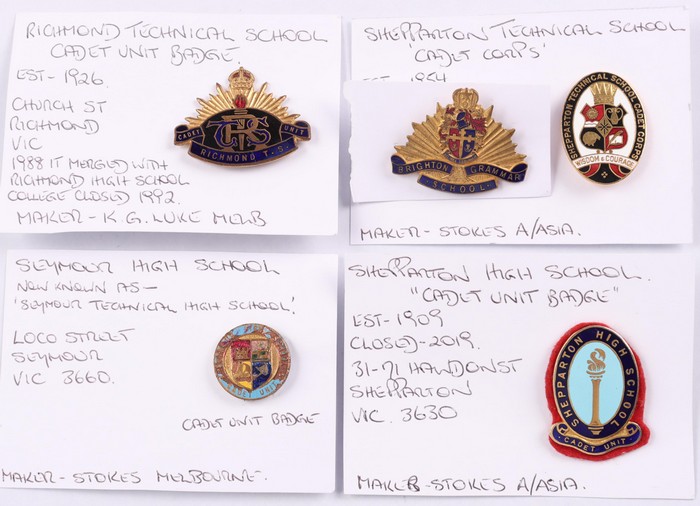 RICHMOND TECHNICAL SCHOOL
CADET UNIT BADGE.
EST-1926.
CHURCH ST
RICHMOND
VIC
1988 IT MERGED WITH
RICHMOND HIGH SCHOOL
COLLEGE CLOSED 1992.
MAKER - K.G. LUKE MELB
CADET UNIT
RICHMOND T.S.
SHEPPARTON TECHNICAL SCHOOL
'CADET CORPS'
EST-1954
BRIGHTON GRAMMAR
SCHOOL
SHEPPARTON TECHNICAL SCHOOL CADET CORPS
WISDOM & COURAGE
MAKER - STOKES A/ASIA.
SEYMOUR HIGH SCHOOL
NOW KNOWN AS -
'SEYMOUR TECHNICAL HIGH SCHOOL'.
LOCO STREET
SEYMOUR
VIC 3660.
CADET UNIT
CADET UNIT BADGE
MAKER - STOKES MELBOURNE.
SHEPPARTON HIGH SCHOOL.
"CADET UNIT BADGE"
EST-1909
CLOSED-2019.
31-71 HAWDON ST
SHEPPARTON
VIC. 3630
SHEPPARTON HIGH SCHOOL
CADET UNIT
MAKER - STOKES A/ASIA.